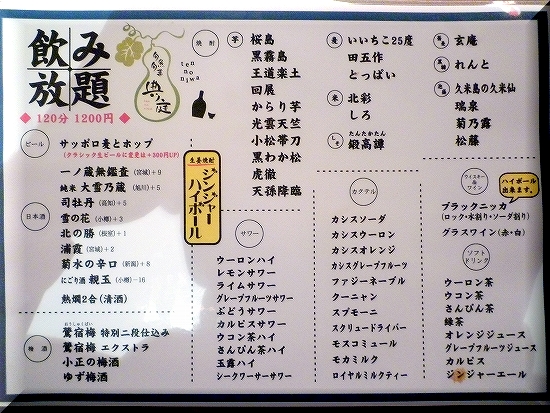 飲み
放題
◆ 120分 1200円 ◆
旬魚
旬菜
典ノ庭
ten
no
niwa
ビール
サッポロ麦とホップ
(クラシック生ビールに変更は+300円UP)
日本酒
一ノ蔵無鑑査(宮城)+9
純米 大雪乃蔵(旭川)+5
司牡丹(高知)+5
雪の花(小樽)+3
北の勝(根室)+1
浦霞(宮城)+2
菊水の辛口(新潟)+8
にごり酒 親玉(小樽)-16
熱燗2合(清酒)
梅酒
おうしゅくばい
鶯宿梅 特別二段仕込み
鶯宿梅 エクストラ
小正の梅酒
ゆず梅酒
焼酎
芋
桜島
黒霧島
王道楽土
回展
からり芋
光雲天竺
小松帯刀
黒わか松
虎徹
天孫降臨
麦
いいちこ25度
田五作
とっぱい
米
北彩
しろ
しそ
たんたかたん
鍛高譚
玄庵
黒糖
れんと
泡盛
久米島の久米仙
瑞泉
菊乃露
松藤
生姜焼酎
ジンジャーハイボール
サワー
ウーロンハイ
レモンサワー
ライムサワー
グレープフルーツサワー
ぶどうサワー
カルピスサワー
ウコン茶ハイ
さんぴん茶ハイ
玉露ハイ
シークワーサーサワー
カクテル
カシスソーダ
カシスウーロン
カシスオレンジ
カシスグレープフルーツ
ファジーネーブル
クーニャン
スプモーニ
スクリュードライバー
モスコミュール
モカミルク
ロイヤルミルクティー
ウイスキー
&
ワイン
ハイボール
出来ます。
ブラックニッカ
(ロック・水割り・ソーダ割り)
グラスワイン(赤・白)
ソフト
ドリンク
ウーロン茶
ウコン茶
さんぴん茶
緑茶
オレンジジュース
グレープフルーツジュース
カルピス
ジンジャーエール